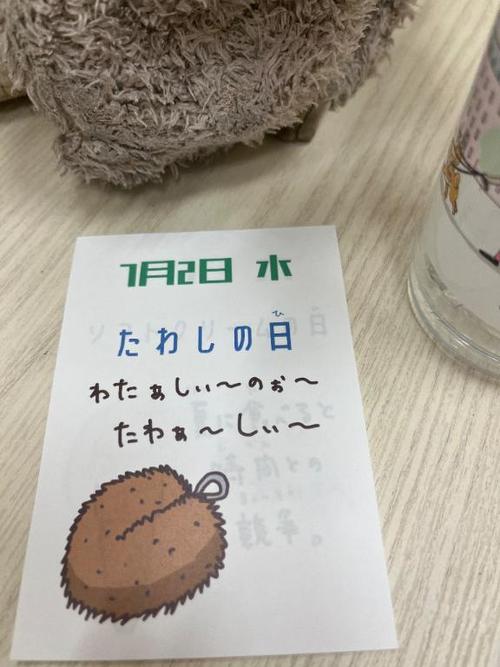 7月2日 水
ひ
たわしの日
わたぁしぃ〜のぉ〜
たわぁ〜しぃ〜